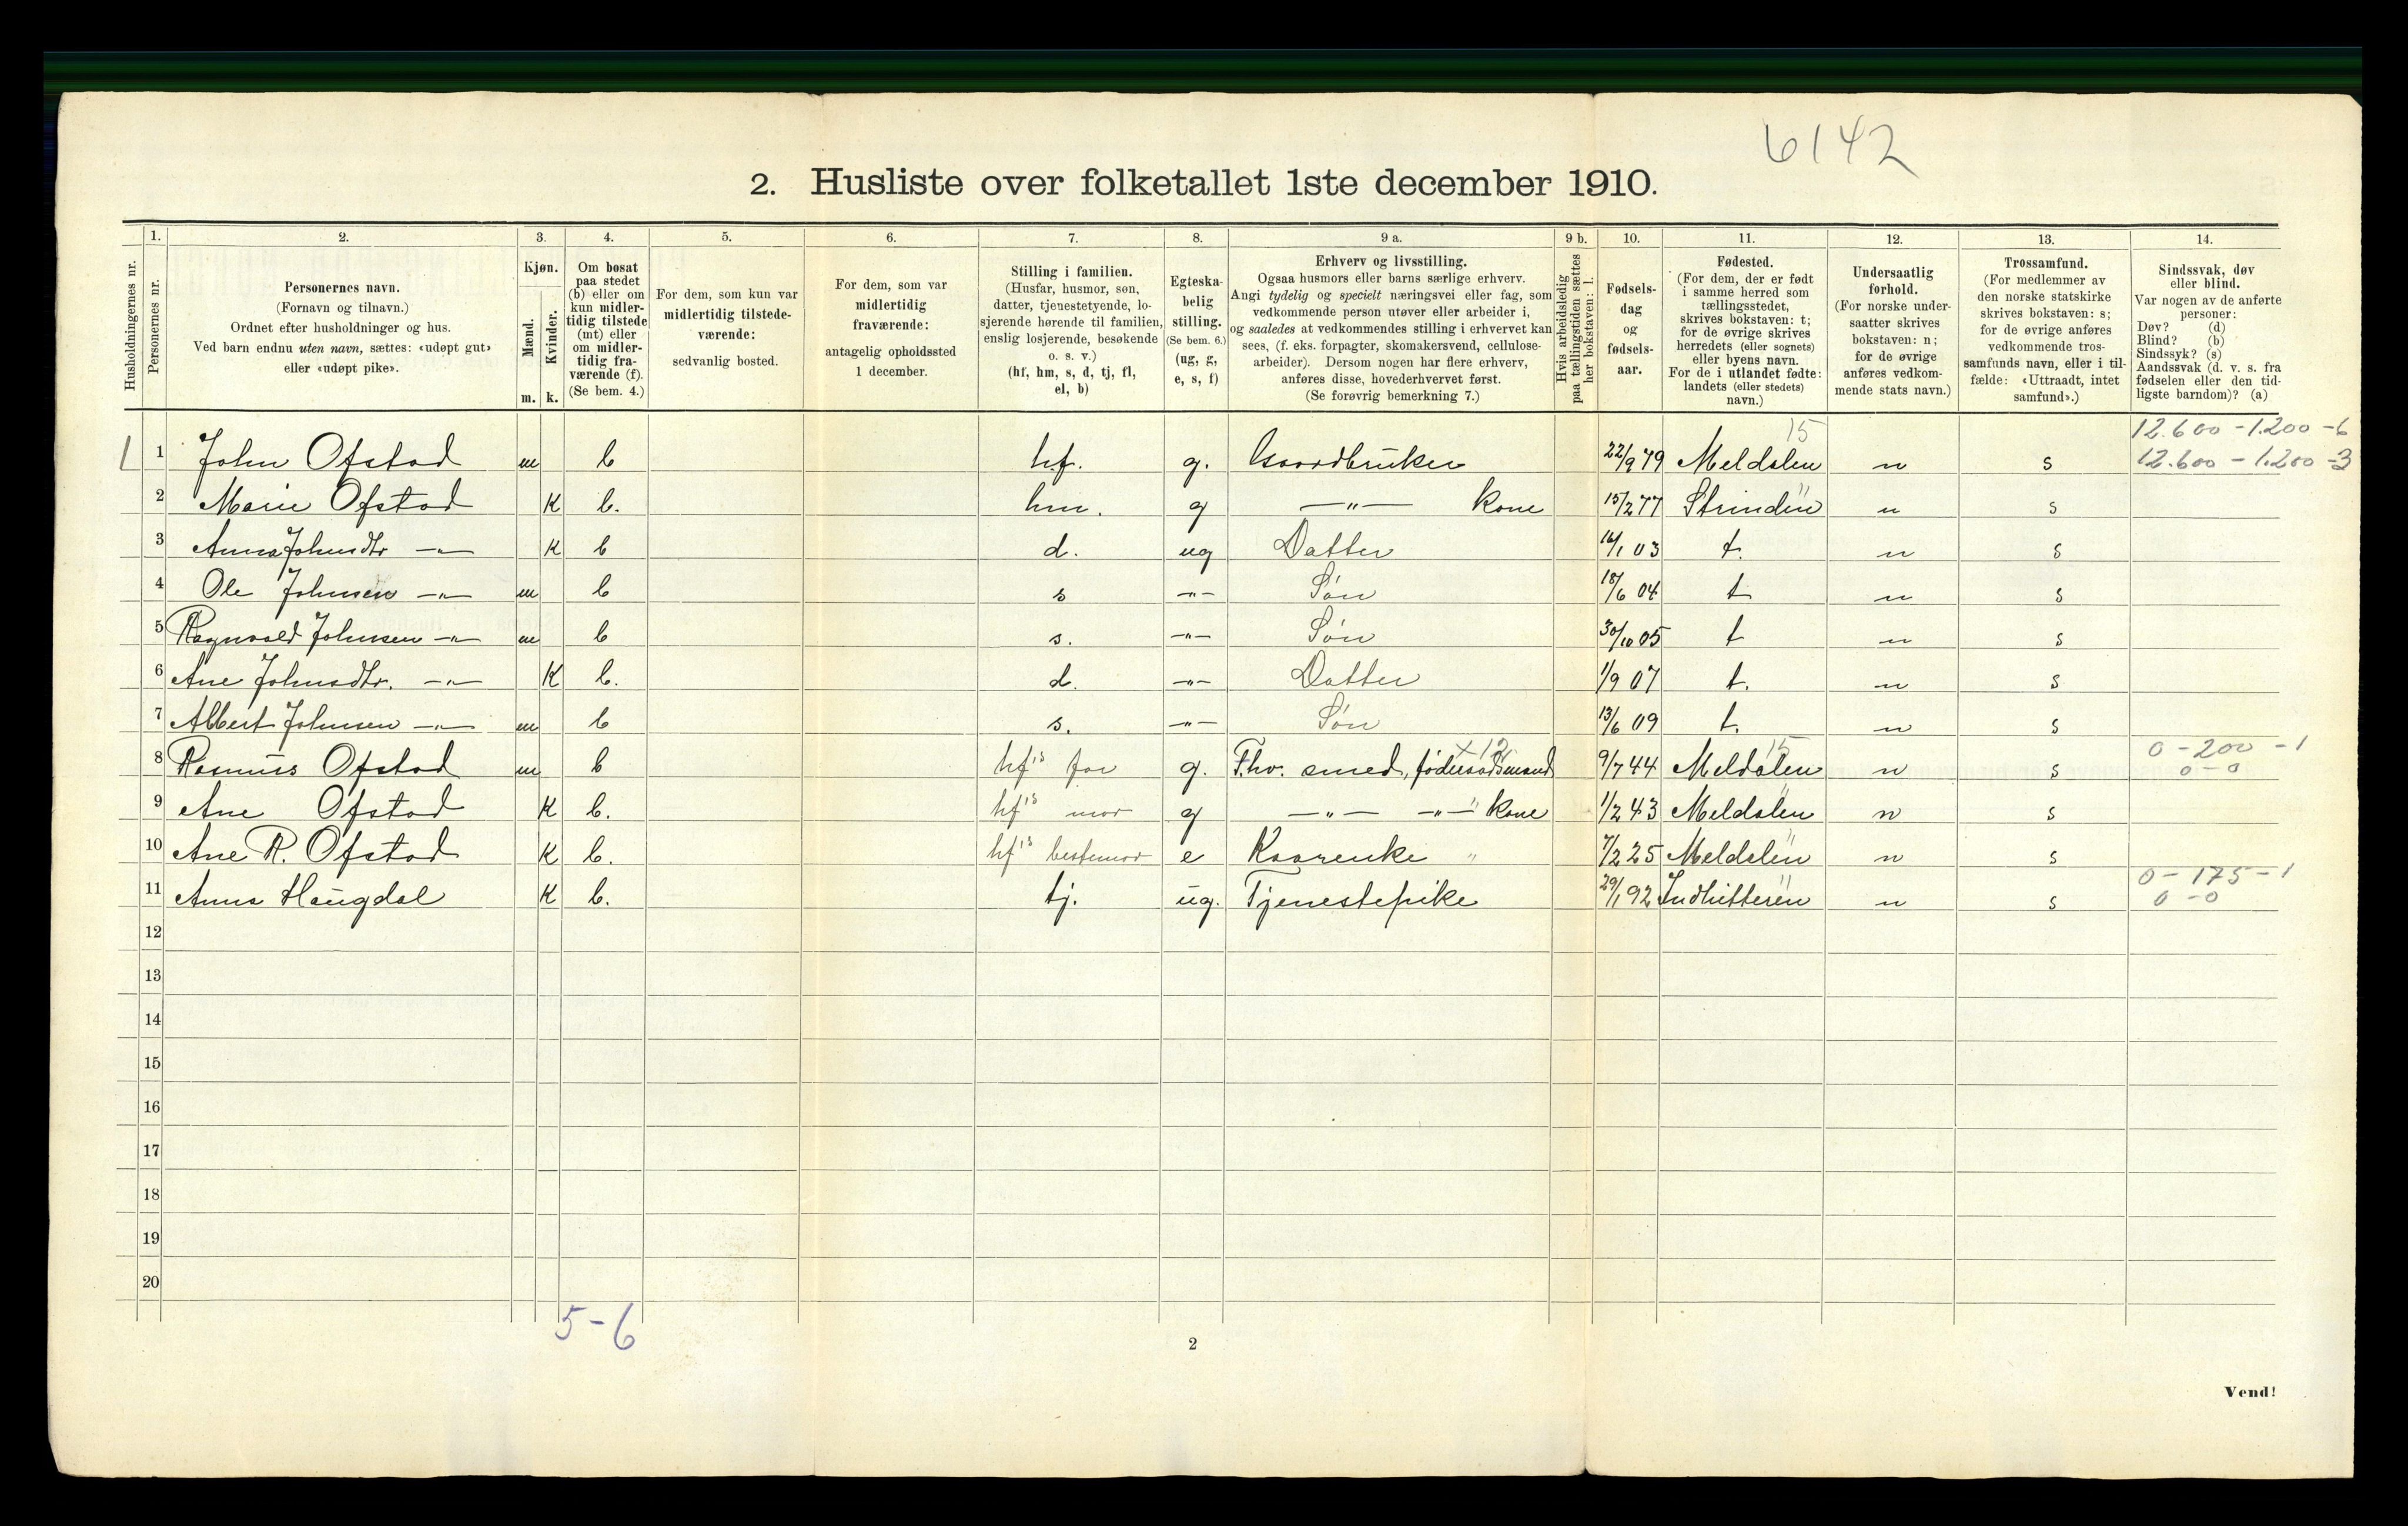 6142
2. Husliste over folketallet 1ste december 1910.
Husholdningernes nr.
1. Personernes nr.
2. Personernes navn. (Fornavn og tilnavn.) Ordnet efter husholdninger og hus. Ved barn endnu uten navn, sættes: «udøpt gut» eller «udøpt pike».
3. Kjøn. Mænd. m. Kvinder. k.
4. Om bosat paa stedet (b) eller om kun midlertidig tilstede (mt) eller om midlertidig fraværende (f). (Se bem. 4.)
5. For dem, som kun var midlertidig tilstedeværende: sedvanlig bosted.
6. For dem, som var midlertidig fraværende: antagelig opholdssted 1 december.
7. Stilling i familien. (Husfar, husmor, søn, datter, tjenestetyende, losjerende hørende til familien, enslig losjerende, besøkende o. s. v.) (hf, hm, s, d, tj, fl, el, b)
8. Egteskabelig stilling. (Se bem. 6.) (ug, g, e, s, f)
9 a. Erhverv og livsstilling. Ogsaa husmors eller barns særlige erhverv. Angi tydelig og specielt næringsvei eller fag, som vedkommende person utøver eller arbeider i, og saaledes at vedkommendes stilling i erhvervet kan sees, (f. eks. forpagter, skomakersvend, cellulosearbeider). Dersom nogen har flere erhverv, anføres disse, hovederhvervet først. (Se forøvrig bemerkning 7.)
9 b. Hvis arbeidsledig paa tællingstiden sættes her bokstaven: l.
10. Fødselsdag og fødselsaar.
11. Fødested. (For dem, der er født i samme herred som tællingsstedet, skrives bokstaven: t; for de øvrige skrives herredets (eller sognets) eller byens navn. For de i utlandet fødte: landets (eller stedets) navn.)
12. Undersaatlig forhold. (For norske undersaatter skrives bokstaven: n; for de øvrige anføres vedkommende stats navn.)
13. Trossamfund. (For medlemmer av den norske statskirke skrives bokstaven: s; for de øvrige anføres vedkommende trossamfunds navn, eller i tilfælde: «Uttraadt, intet samfund».)
14. Sindssvak, døv eller blind. Var nogen av de anførte personer: Døv? (d) Blind? (b) Sindssyk? (s) Aandssvak (d. v. s. fra fødselen eller den tidligste barndom)? (a)
15 12.600 - 1.200 - 6
1 1 John Ofstad m b hf. g. Gaardbruker 22/9 79 Meldalen n s 12.600 - 1.200 - 3
2 Marie Ofstad K b. hm. g —"— kone 15/2 77 Strinden " n s
3 Anna Johnsdtr —"— K b d. ug Datter 16/1 03 t. n s
4 Ole Johnsen —"— m b s —"— Søn 18/6 04 t n s
5 Ragnvald Johnsen —"— m b s. —"— Søn 30/10 05 t n s
6 Ane Johnsdtr. —"— K b. d. —"— Datter 1/9 07 t. n s
7 Albert Johnsen —"— m b s. —"— Søn 13/6 09 t. n s
+12 15 0 - 200 - 1
8 Rasmus Ofstad m b hf's far g. F.hv. smed, føderaadsmand 9/7 44 Meldalen n s 0 - 0
9 Ane Ofstad K b. hf's mor g —"— —"— " kone 1/2 43 Meldalen " n s
10 Ane R. Ofstad K b. hf's bestemor e Kaarenke " 7/2 25 Meldalen " n s
0 - 175 - 1
11 Anna Haugdal K b. tj. ug. Tjenestepike 29/1 92 Indhitteren " n s 0 - 0
12
13
14
15
16
17
18
19
20
5-6
2
Vend!